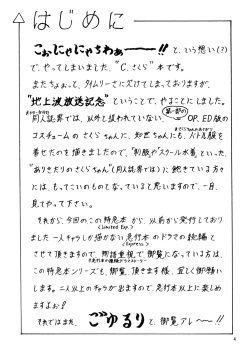 はじめに
こぉにゃにゃちわぁーー!! と、いう想い(?)
で、やってしまいました、"C.さくら"本です。
またちょおっと、タイムリーさに欠けてしまっておりますが、
"地上波放送記念"ということで、やることにしました。
同人誌界では、以外と扱われていない、 OP、ED版の
コスチュームの さくらちゃんに、知世ちゃんにも、バトル服を
着せたのを描きましたので、「制服やスクール水着」といった、
"ありきたりのさくらちゃん"(同人誌界では)に飽きている方々
には、もってこいのものとなっていると思いますので、一目、
見てやって下さい。
それから、今回のこの特急本から、以前から発行しており
(Limited Exp.)
ました一人キャラしか描かない急行本のドラマの続編と
(Express)
させて頂きますので、物語重視で御覧になっている方は、
この特急本シリーズも、御覧頂きます様、宜しく御願い
します。二人以上のキャラが出ますので、急行本以上に楽しめ
ますよぉ!
それではまた、ごゆるりと、御覧アレ〜!!